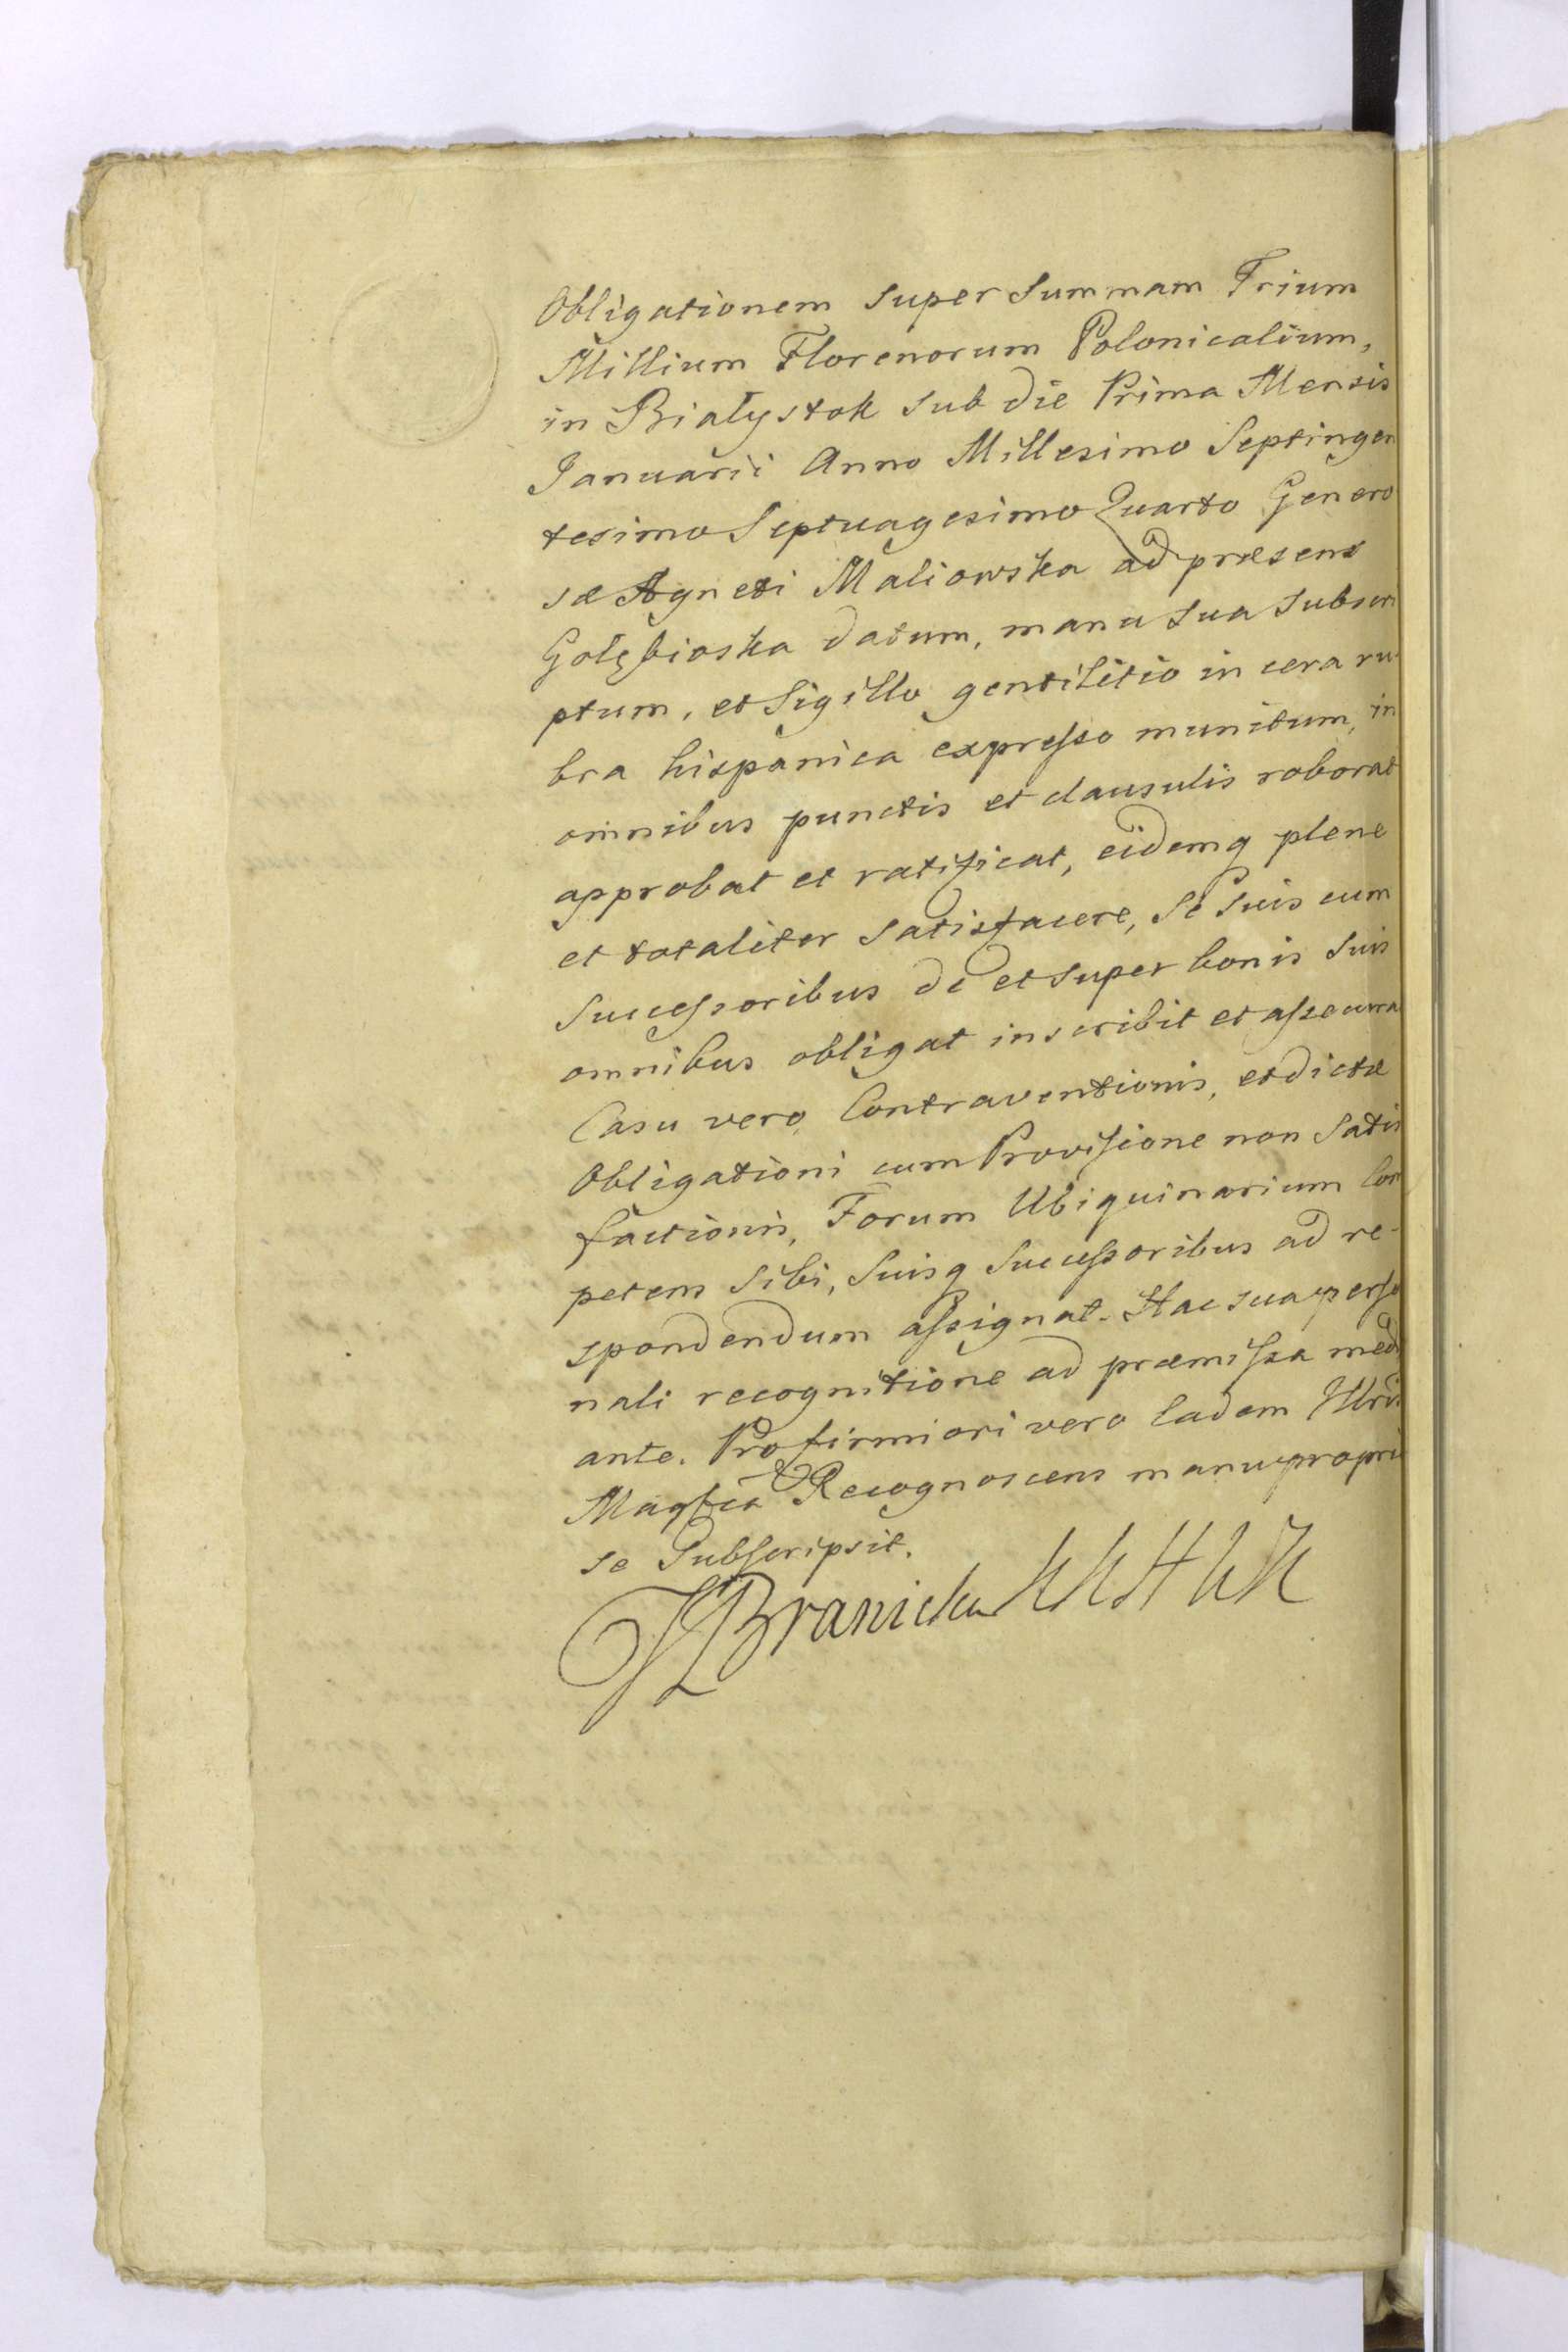 Obligationem super Summam Trium
Millium Florenorum Polonicalium,
in Białystok sub die Prima Mensis
Januarii Anno Millesimo Septingen
tesimo Septuagesimo Quarto Genero
sæ Agneti Maliowska ad præsens
Gołębioska datum, manu sua subscri
ptum, et Sigillo gentilitio in cera ru-
bra hispanica expresso munitum, in
omnibus punctis et clausulis roborat
approbat et ratificat, eidemq plene
et totaliter satisfacere, se suis cum
Successoribus de et super bonis suis
omnibus obligat inscribit et assecura
Casu vero Contraventionis, et dictæ
Obligationi cum Provisione non satis
factionis, Forum Ubiquinarium Com
petens sibi, Suisq Successoribus ad re-
spondendum assignat. Hac sua perso
nali recognitione ad præmissa medi
ante. Pro firmiori vero Eadem Illris
Magfica Recognoscens manu propria
se Subscripsit.
Branicka KKHWK